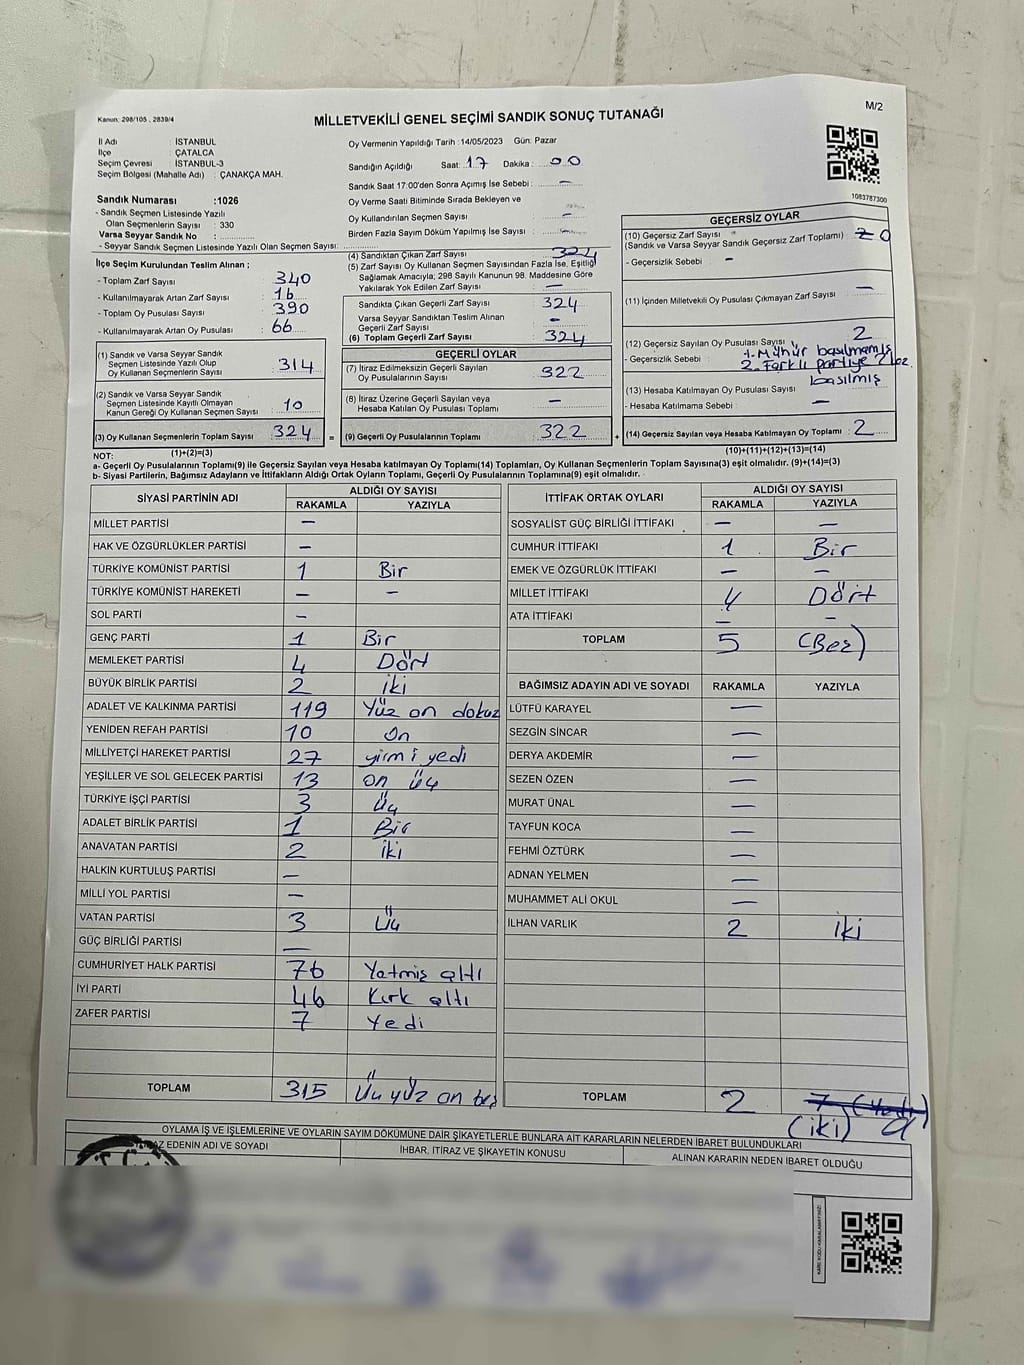 Kanun: 298/105 , 2839/4
M/2
MİLLETVEKİLİ GENEL SEÇİMİ SANDIK SONUÇ TUTANAĞI
İl Adı : İSTANBUL
İlçe : ÇATALCA
Seçim Çevresi : İSTANBUL-3
Seçim Bölgesi (Mahalle Adı) : ÇANAKÇA MAH.
Sandık Numarası :1026
- Sandık Seçmen Listesinde Yazılı
Olan Seçmenlerin Sayısı : 330
Varsa Seyyar Sandık No :
- Seyyar Sandık Seçmen Listesinde Yazılı Olan Seçmen Sayısı:
Oy Vermenin Yapıldığı Tarih :14/05/2023 Gün: Pazar
Sandığın Açıldığı Saat: 17 Dakika : 00
Sandık Saat 17:00'den Sonra Açımış İse Sebebi : —
Oy Verme Saati Bitiminde Sırada Bekleyen ve
Oy Kullandırılan Seçmen Sayısı : —
Birden Fazla Sayım Döküm Yapılmış İse Sayısı :
1083787300
İlçe Seçim Kurulundan Teslim Alınan ;
- Toplam Zarf Sayısı : 340
- Kullanılmayarak Artan Zarf Sayısı : 16
- Toplam Oy Pusulası Sayısı : 390
- Kullanılmayarak Artan Oy Pusulası : 66
(1) Sandık ve Varsa Seyyar Sandık
Seçmen Listesinde Yazılı Olup
Oy Kullanan Seçmenlerin Sayısı : 314
(2) Sandık ve Varsa Seyyar Sandık
Seçmen Listesinde Kayıtlı Olmayan
Kanun Gereği Oy Kullanan Seçmen Sayısı : 10
(3) Oy Kullanan Seçmenlerin Toplam Sayısı : 324
(4) Sandıktan Çıkan Zarf Sayısı : 324
(5) Zarf Sayısı Oy Kullanan Seçmen Sayısından Fazla İse, Eşitliği
Sağlamak Amacıyla; 298 Sayılı Kanunun 98. Maddesine Göre
Yakılarak Yok Edilen Zarf Sayısı : —
Sandıkta Çıkan Geçerli Zarf Sayısı : 324
Varsa Seyyar Sandıktan Teslim Alınan
Geçerli Zarf Sayısı : —
(6) Toplam Geçerli Zarf Sayısı : 324
GEÇERLİ OYLAR
(7) İtiraz Edilmeksizin Geçerli Sayılan
Oy Pusulalarının Sayısı : 322
(8) İtiraz Üzerine Geçerli Sayılan veya
Hesaba Katılan Oy Pusulası Toplamı : —
= (9) Geçerli Oy Pusulalarının Toplamı : 322 +
GEÇERSİZ OYLAR
(10) Geçersiz Zarf Sayısı :
(Sandık ve Varsa Seyyar Sandık Geçersiz Zarf Toplamı) 0
- Geçersizlik Sebebi : —
(11) İçinden Milletvekili Oy Pusulası Çıkmayan Zarf Sayısı : —
(12) Geçersiz Sayılan Oy Pusulası Sayısı : 2
- Geçersizlik Sebebi : 1. Mühür basılmamış
2. Farklı partiye
basılmış
(13) Hesaba Katılmayan Oy Pusulası Sayısı :
- Hesaba Katılmama Sebebi : —
(14) Geçersiz Sayılan veya Hesaba Katılmayan Oy Toplamı : 2
NOT: (1)+(2)=(3)
(10)+(11)+(12)+(13)=(14)
a- Geçerli Oy Pusulalarının Toplamı(9) ile Geçersiz Sayılan veya Hesaba katılmayan Oy Toplamı(14) Toplamları, Oy Kullanan Seçmenlerin Toplam Sayısına(3) eşit olmalıdır. (9)+(14)=(3)
b- Siyasi Partilerin, Bağımsız Adayların ve İttifakların Aldığı Ortak Oyların Toplamı, Geçerli Oy Pusulalarının Toplamına(9) eşit olmalıdır.
SİYASİ PARTİNİN ADI ALDIĞI OY SAYISI
RAKAMLA YAZIYLA
MİLLET PARTİSİ —
HAK VE ÖZGÜRLÜKLER PARTİSİ —
TÜRKİYE KOMÜNİST PARTİSİ 1 Bir
TÜRKİYE KOMÜNİST HAREKETİ — —
SOL PARTİ —
GENÇ PARTİ 1 Bir
MEMLEKET PARTİSİ 4 Dört
BÜYÜK BİRLİK PARTİSİ 2 iki
ADALET VE KALKINMA PARTİSİ 119 Yüz on dokuz
YENİDEN REFAH PARTİSİ 10 On
MİLLİYETÇİ HAREKET PARTİSİ 27 yirmi yedi
YEŞİLLER VE SOL GELECEK PARTİSİ 13 on üç
TÜRKİYE İŞÇİ PARTİSİ 3 Üç
ADALET BİRLİK PARTİSİ 1 Bir
ANAVATAN PARTİSİ 2 iki
HALKIN KURTULUŞ PARTİSİ —
MİLLİ YOL PARTİSİ —
VATAN PARTİSİ 3 Üç
GÜÇ BİRLİĞİ PARTİSİ —
CUMHURİYET HALK PARTİSİ 76 Yetmiş altı
İYİ PARTİ 46 Kırk altı
ZAFER PARTİSİ 7 Yedi
TOPLAM 315 Üç yüz on beş
İTTİFAK ORTAK OYLARI ALDIĞI OY SAYISI
RAKAMLA YAZIYLA
SOSYALİST GÜÇ BİRLİĞİ İTTİFAKI — —
CUMHUR İTTİFAKI 1 Bir
EMEK VE ÖZGÜRLÜK İTTİFAKI — —
MİLLET İTTİFAKI 4 Dört
ATA İTTİFAKI — —
TOPLAM 5 (Beş)
BAĞIMSIZ ADAYIN ADI VE SOYADI RAKAMLA YAZIYLA
LÜTFÜ KARAYEL —
SEZGİN SİNCAR —
DERYA AKDEMİR —
SEZEN ÖZEN —
MURAT ÜNAL —
TAYFUN KOCA —
FEHMİ ÖZTÜRK —
ADNAN YELMEN —
MUHAMMET ALİ OKUL —
İLHAN VARLIK 2 iki
TOPLAM 2 7 (Yedi)
(iki)
OYLAMA İŞ VE İŞLEMLERİNE VE OYLARIN SAYIM DÖKÜMÜNE DAİR ŞİKAYETLERLE BUNLARA AİT KARARLARIN NELERDEN İBARET BULUNDUKLARI
EDENİN ADI VE SOYADI
İHBAR, İTİRAZ VE ŞİKAYETİN KONUSU
ALINAN KARARIN NEDEN İBARET OLDUĞU